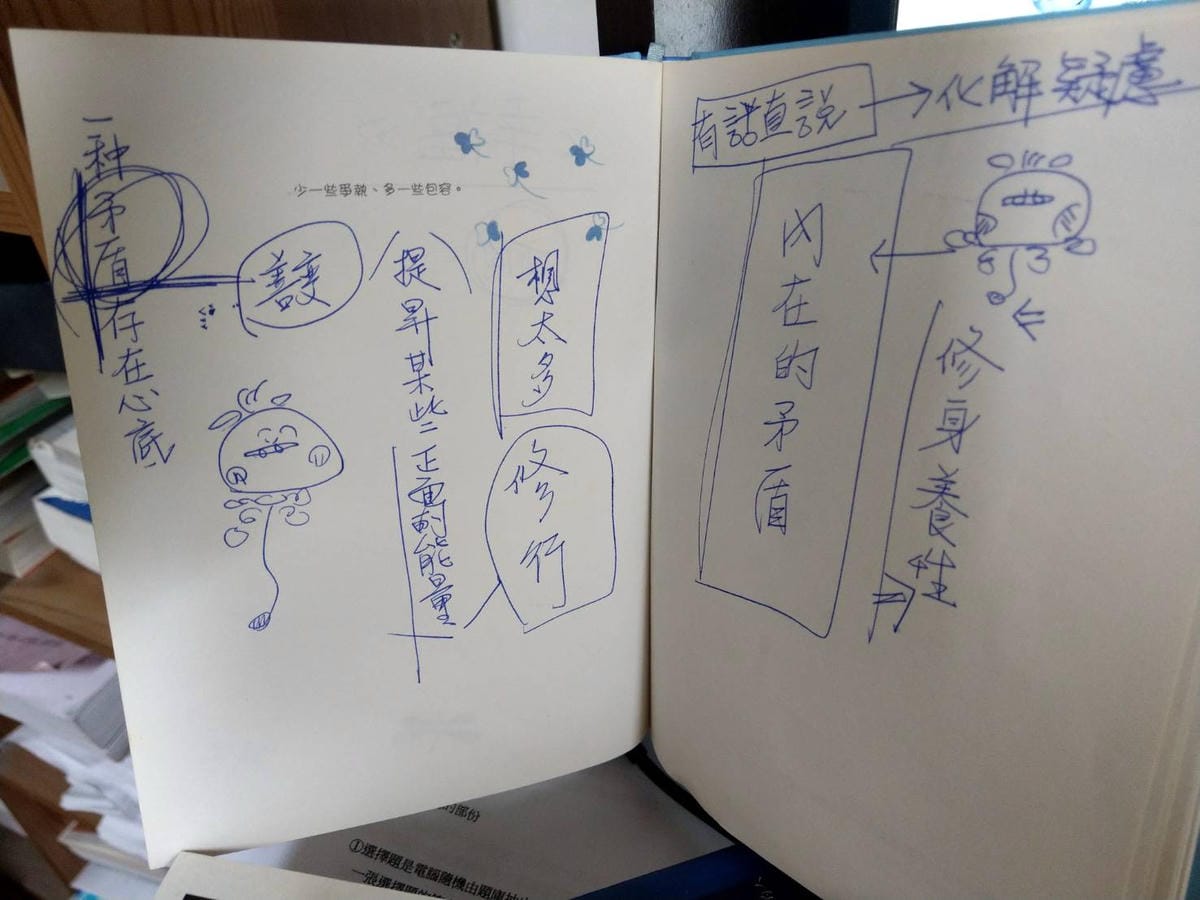 有話直說→化解疑慮
內在的矛盾
修身養性
少一些爭執、多一些包容。
想太多
修行
提昇某些正面的能量
護
一种矛盾存在心底
的部份
①選擇題是電腦隨機由題庫抽
一張選擇題